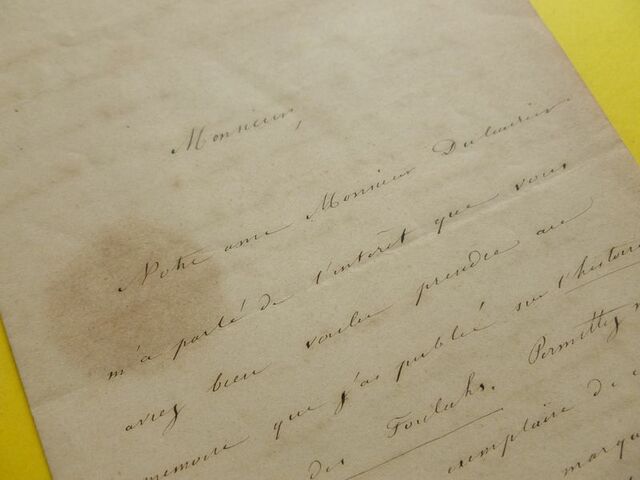 Monsieur,
Notre ami Monsieur Dulaurier
m'a parlé de l'intérêt que vous
avez bien voulu prendre au
mémoire que j'ai publié sur l'histoire
des Foulahs. Permettez
exemplaire de
marqu